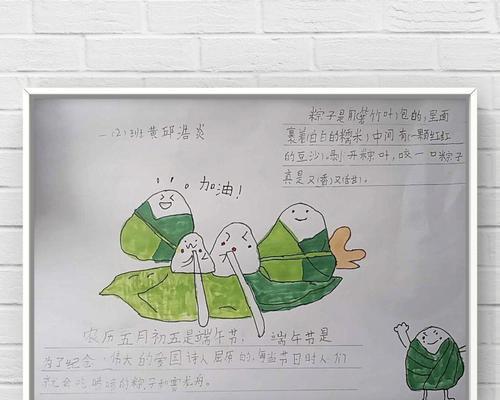 一(2)班黄邱浩炎
粽子是用箬竹叶包的,里面
裹着白白的糯米,中间有一颗红红
的豆沙。剥开粽叶,咬一口粽子
真是又香又甜。
加油!
农历五月初五是端午节, 端午节是
为了纪念 伟大的爱国诗人屈原的,每当节日时人们
就会吃 的粽子和赛龙舟。